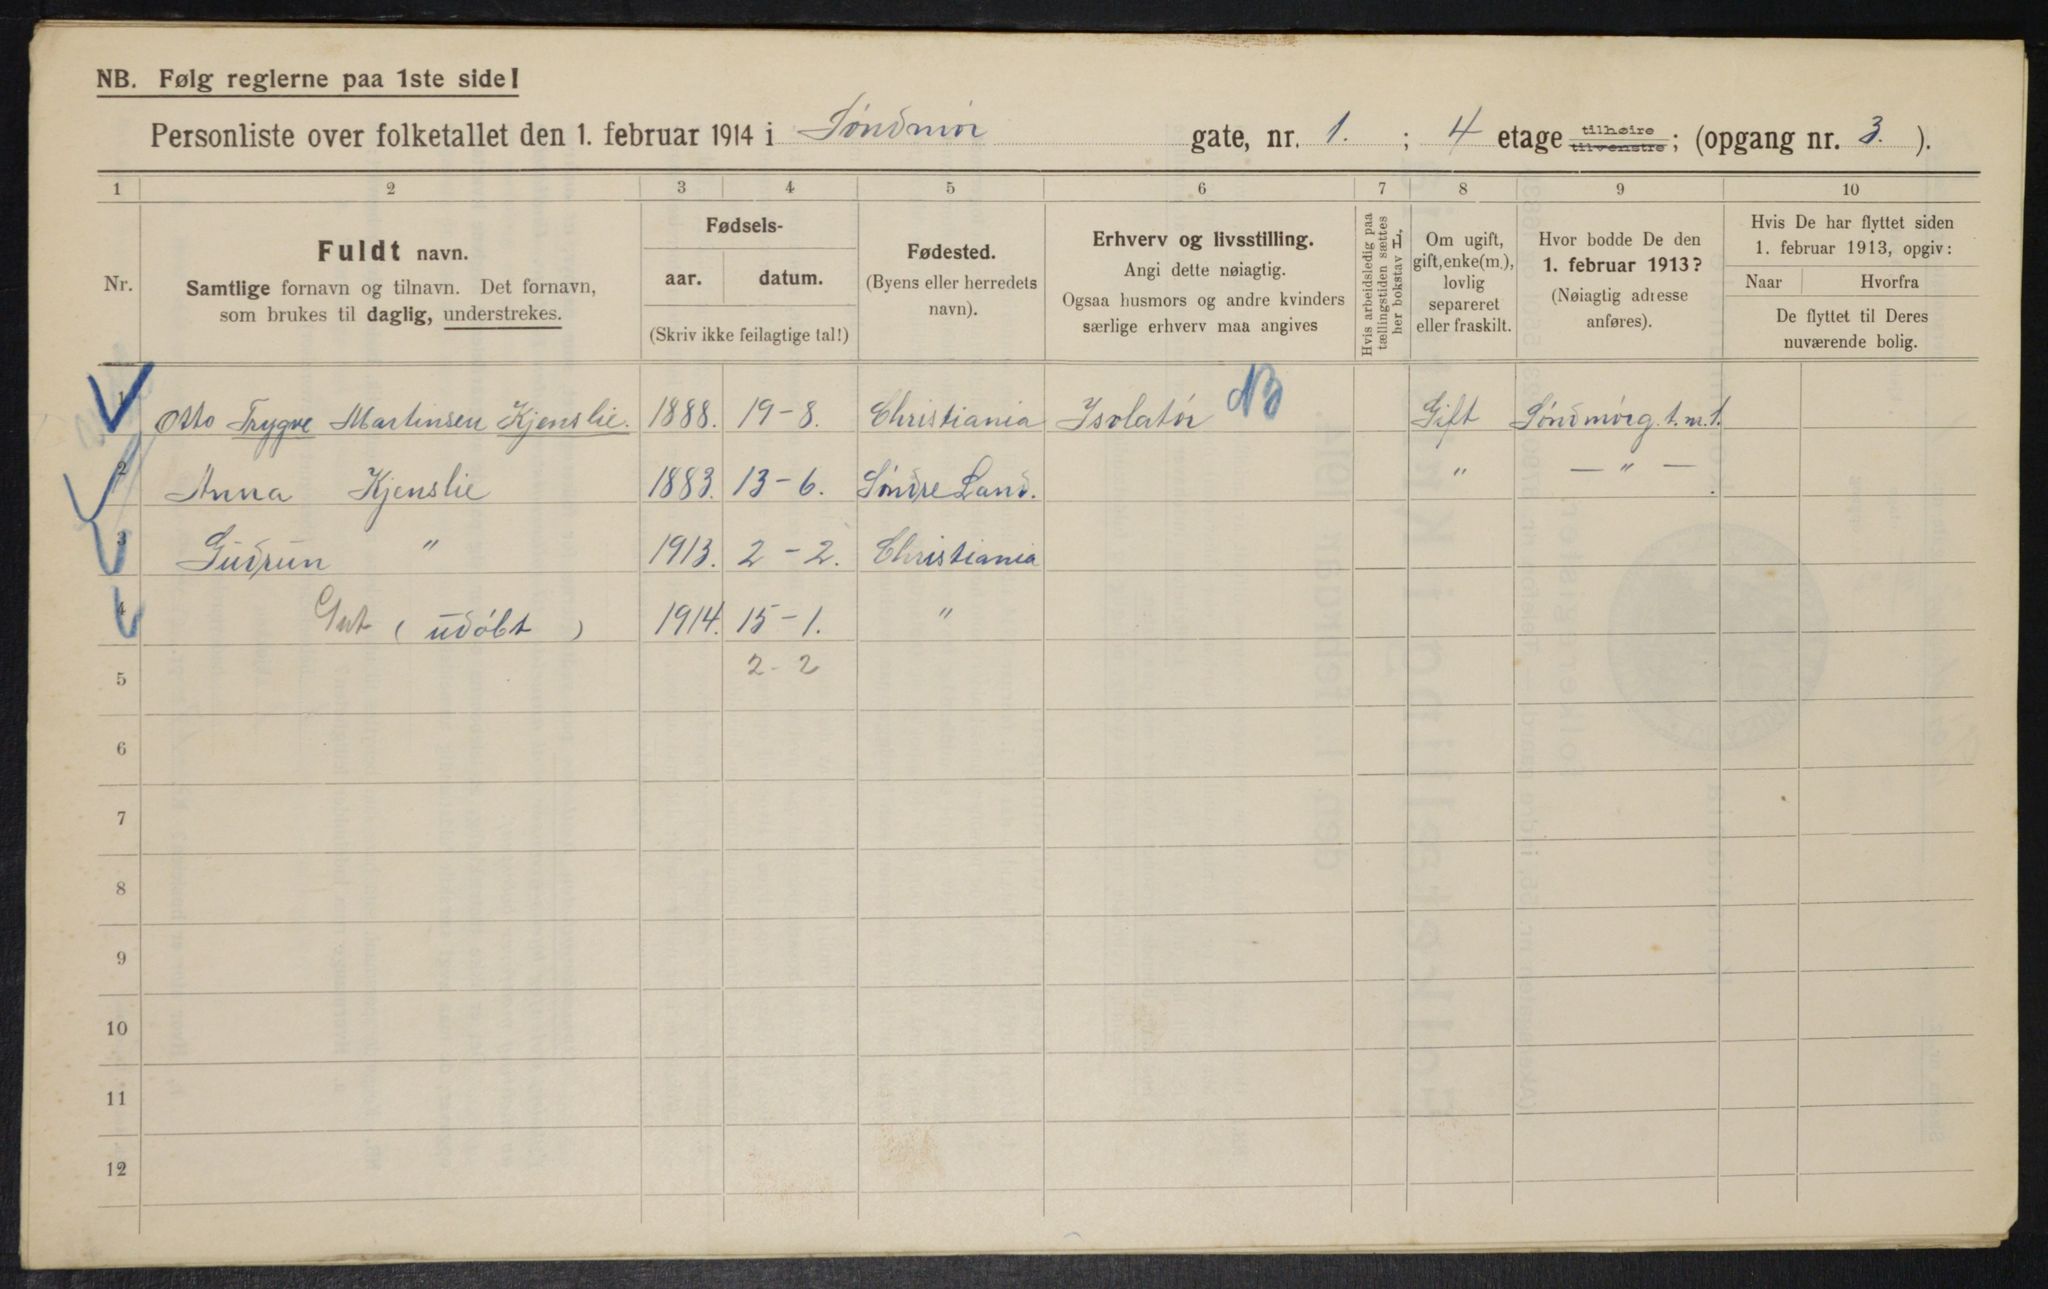 NB. Følg reglerne paa 1ste side!
Personliste over folketallet den 1. februar 1914 i Söndmör gate, nr. 1. ; 4 etage tilhøire tilvenstre; (opgang nr. 3. ).
1 2 3 4 5 6 7 8 9 10
Nr.
Fuldt navn.
Samtlige fornavn og tilnavn. Det fornavn,
som brukes til daglig, understrekes.
Fødsels-
aar. datum.
(Skriv ikke feilagtige tal!)
Fødested.
(Byens eller herredets
navn).
Erhverv og livsstilling.
Angi dette nøiagtig.
Ogsaa husmors og andre kvinders
særlige erhverv maa angives
Hvis arbeidsledig paa
tællingstiden sættes
her bokstav L.
Om ugift,
gift, enke(m.),
lovlig
separeret
eller fraskilt.
Hvor bodde De den
1. februar 1913?
(Nøiagtig adresse
anføres).
Hvis De har flyttet siden
1. februar 1913, opgiv:
Naar Hvorfra
De flyttet til Deres
nuværende bolig.
1 Otto Trygve Martinsen Kjenslie. 1888. 19-8. Christiania Isolatör NB Gift Söndmörg. t. m. 1.
2 Anna Kjenslie 1883. 13-6. Söndre Land. " — " —
3 Gudrun " 1913. 2-2. Christiania
4 Gut ( udöbt ) 1914. 15-1. "
5 2-2
6
7
8
9
10
11
12